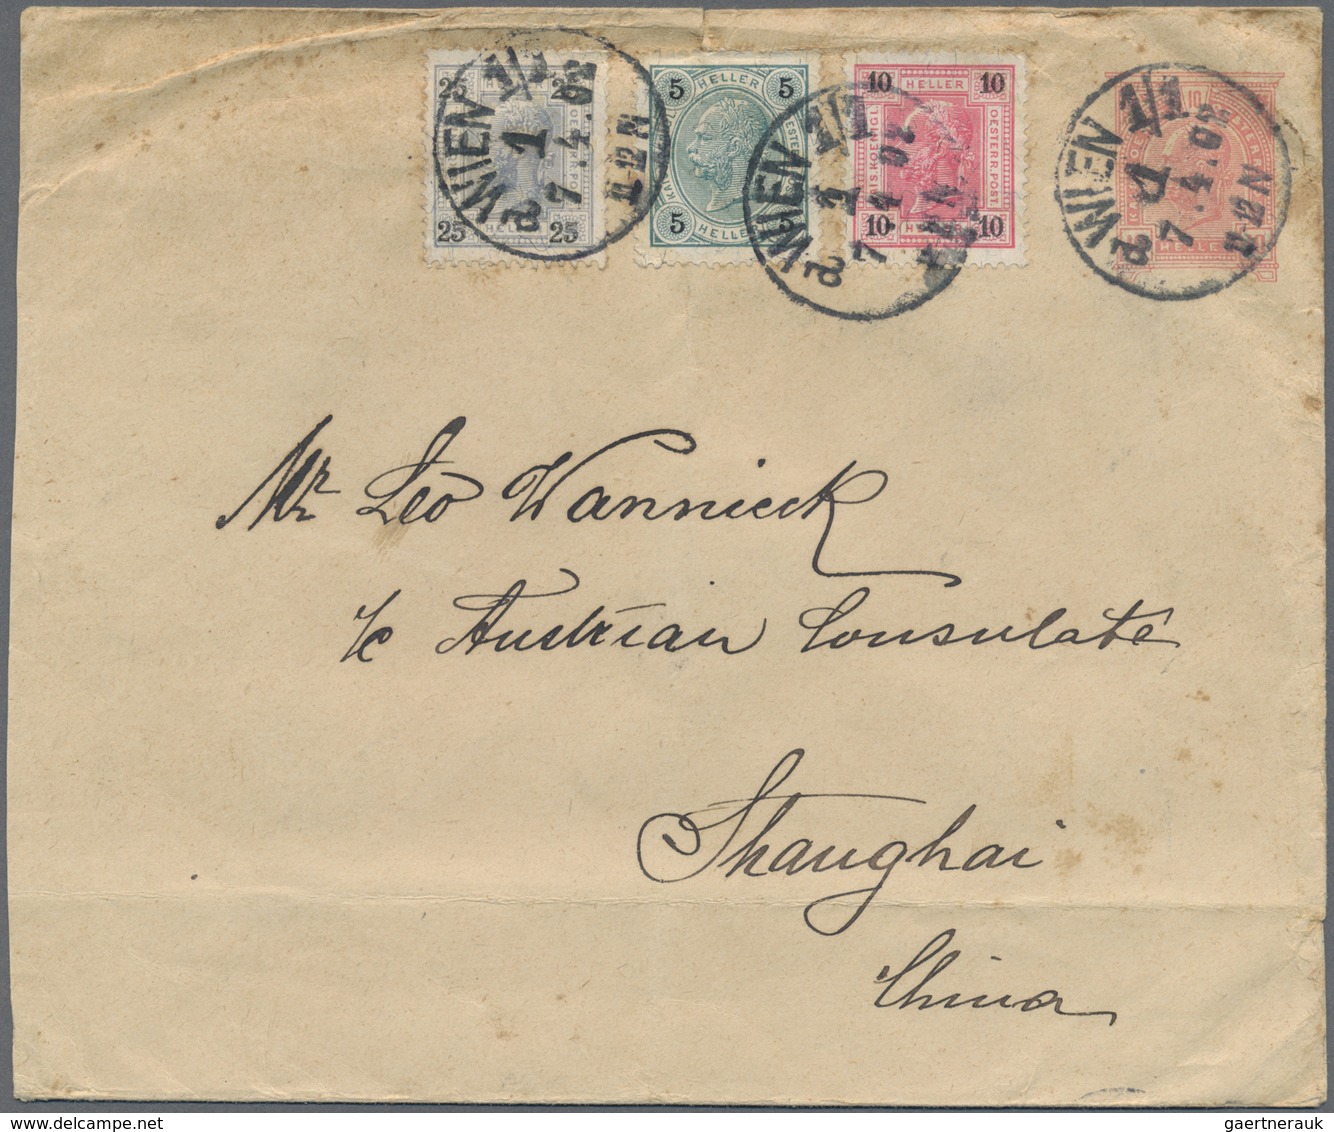 25 25
HELLER
25 25
5 HELLER 5
5 HELLER 5
10 HELLER 10
OESTERR. POST
10 10
10
WIEN 1/1
1
7.4.02
11-12 N
WIEN 1/1
1
7.4.02
WIEN 1/1
1
7.4.02
11-12 N
Mr Leo Wannieck
c/o Austrian Consulate
Shanghai
China
gaertnerauk